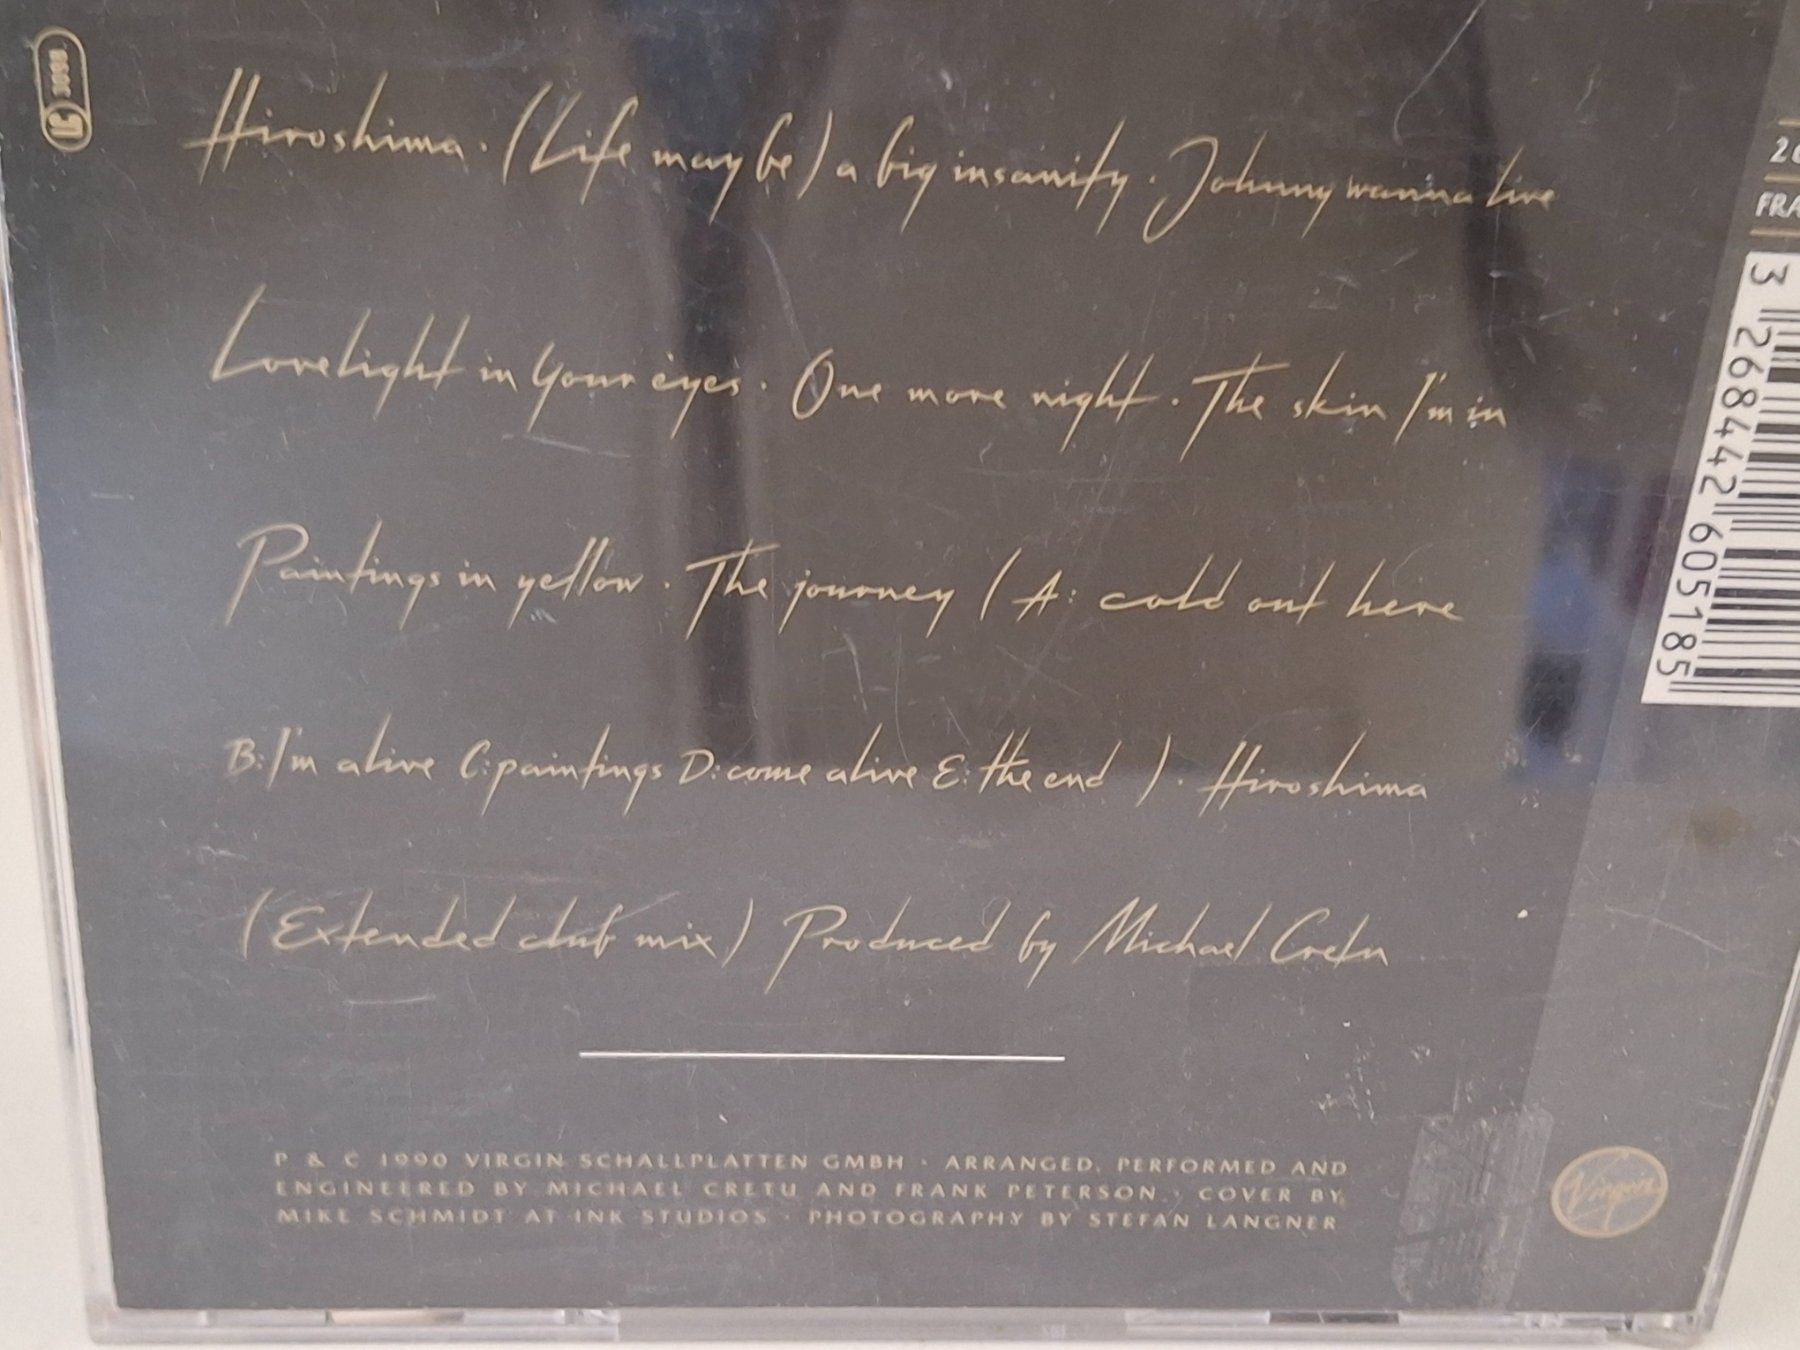 3098
Hiroshima · (Life may be) a big insanity · Johnny wanna live
Lovelight in your eyes · One more night · The skin I'm in
Paintings in yellow · The journey (A: cold out here
B: I'm alive C: paintings D: come alive E: the end ) · Hiroshima
(Extended club mix) Produced by Michael Cretu
P & C 1990 VIRGIN SCHALLPLATTEN GMBH · ARRANGED, PERFORMED AND
ENGINEERED BY MICHAEL CRETU AND FRANK PETERSON · COVER BY
MIKE SCHMIDT AT INK STUDIOS · PHOTOGRAPHY BY STEFAN LANGNER
Virgin
FRA
3 268442 605185